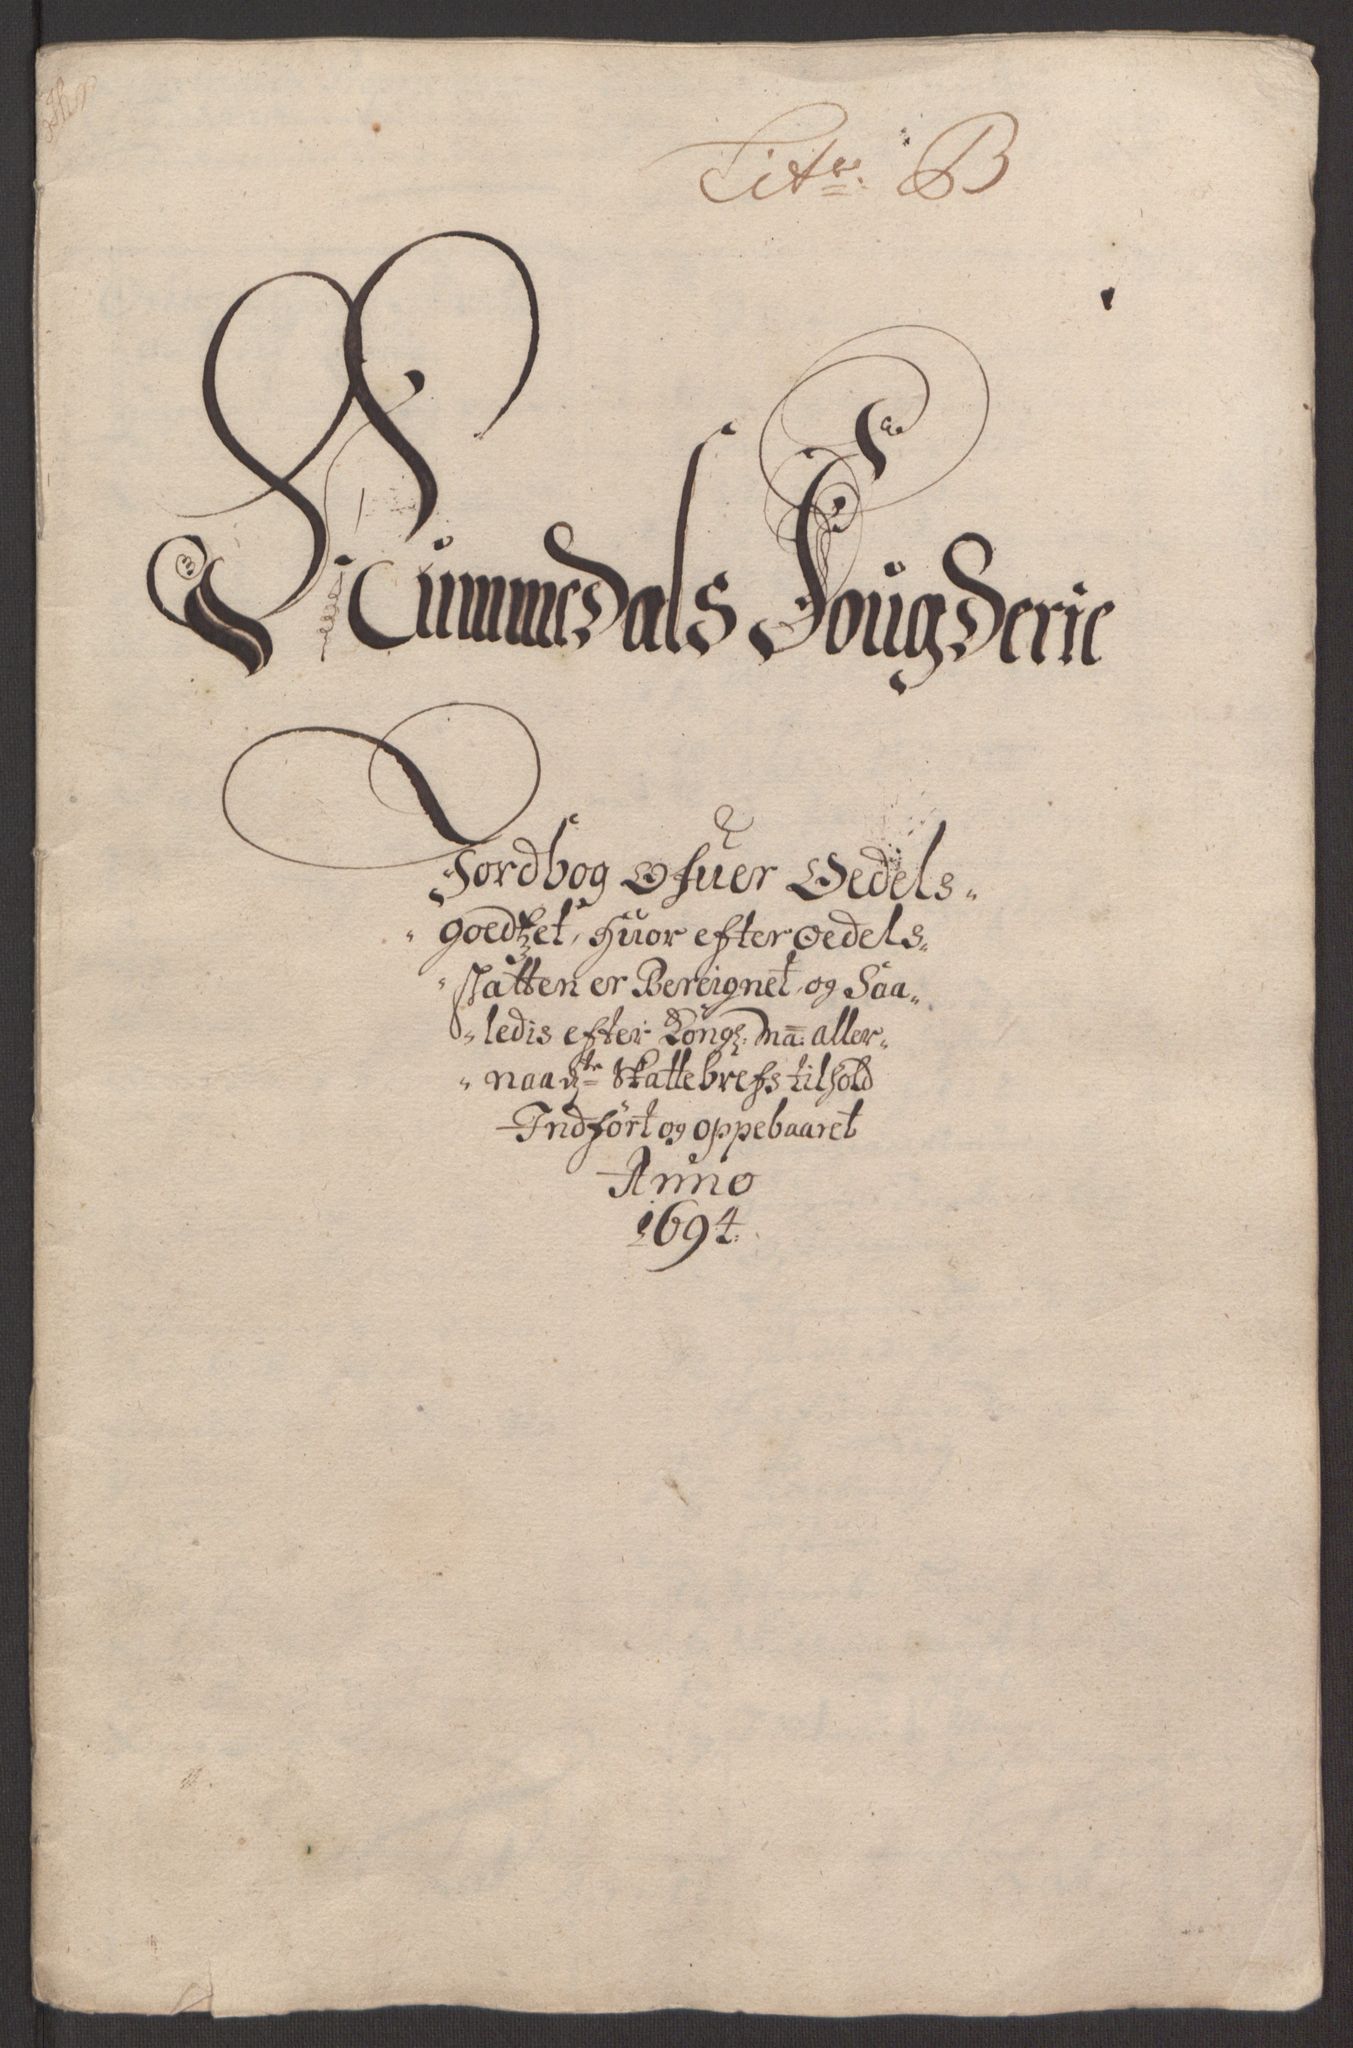 Litr: B
Nummedals Fougderie
Jordbog Ofuer Oedels-
goedtzet, huor efter oedels-
skatten er Bereignet, og Saa-
ledis efter Kongl: ma: aller-
naadste Skattebrefs tilhold
Indført og oppebaaret
Anno
1694.